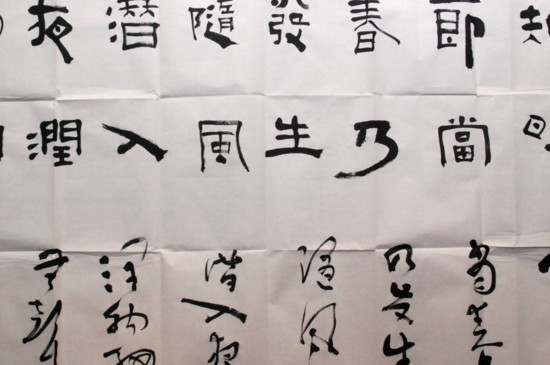 節當
春乃
發生
隨風
潛入
夜潤
當春
乃發生
隨風
潛入夜
潤物細
無聲